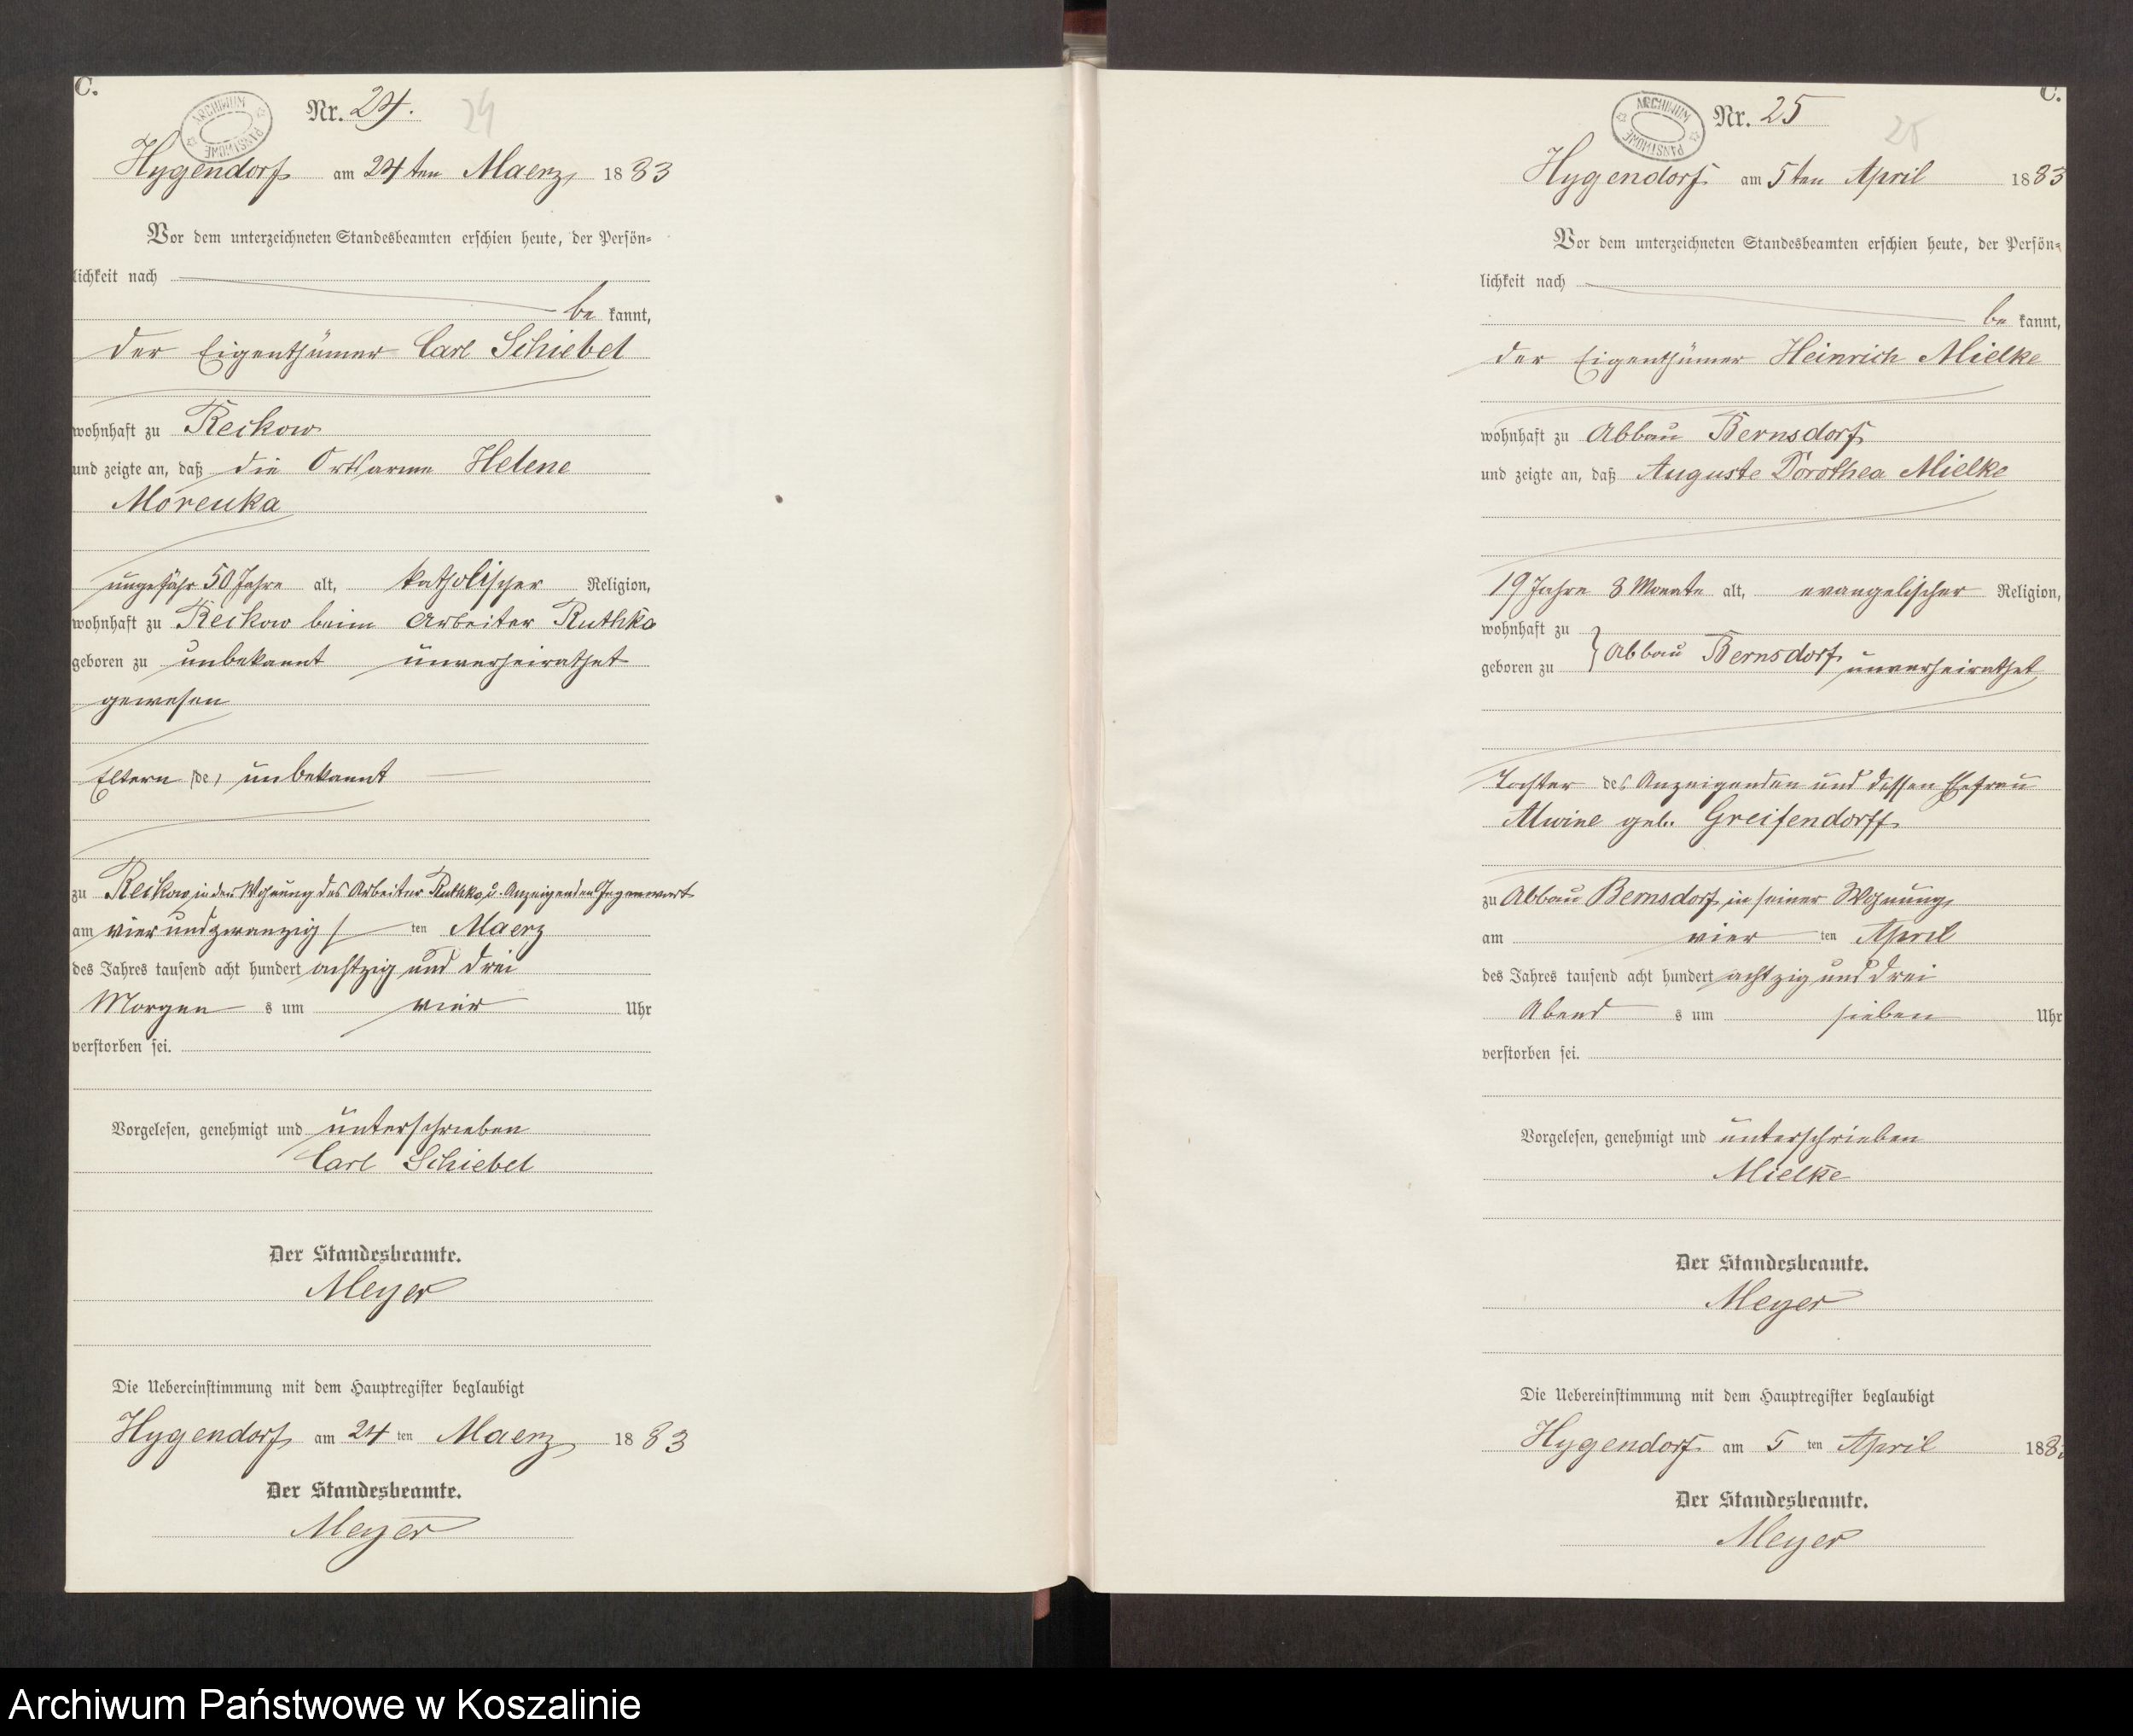 C.
ARCHIWUM PAŃSTWOWE
Nr. 24. 24
Hygendorf am 24ten Maerz 1883
Vor dem unterzeichneten Standesbeamten erschien heute, der Persön-
lichkeit nach
be kannt,
der Eigenthümer Carl Schiebel
wohnhaft zu Reckow
und zeigte an, daß die Ortsarme Helene
Morenka
ungefähr 50 Jahre alt, katholischer Religion,
wohnhaft zu Reckow beim Arbeiter Ruthko
geboren zu unbekannt unverheirathet
gewesen
Eltern sie, unbekannt
zu Reckow in der Wohnung des Arbeiter Ruthko, u. Anzeigenden Gegenwart
am vier und zwanzig ten Maerz
des Jahres tausend acht hundert achtzig und drei
Morgen s um vier Uhr
verstorben sei.
Vorgelesen, genehmigt und unterschrieben
Carl Schiebel
Der Standesbeamte.
Meyer
Die Uebereinstimmung mit dem Hauptregister beglaubigt
Hygendorf am 24 ten Maerz 1883
Der Standesbeamte.
Meyer
C.
ARCHIWUM PAŃSTWOWE
Nr. 25 25
Hygendorf am 5ten April 1883
Vor dem unterzeichneten Standesbeamten erschien heute, der Persön-
lichkeit nach
be kannt,
der Eigenthümer Heinrich Mielke
wohnhaft zu Abbau Bernsdorf
und zeigte an, daß Auguste Dorothea Mielke
19 Jahre 3 Monate alt, evangelischer Religion,
wohnhaft zu
geboren zu } Abbau Bernsdorf unverheirathet
Tochter des Anzeigenden und dessen Ehefrau
Alwine geb. Greifendorff
zu Abbau Bernsdorf in seiner Wohnung
am vier ten April
des Jahres tausend acht hundert achtzig und drei
Abend s um sieben Uhr
verstorben sei.
Vorgelesen, genehmigt und unterschrieben
Mielke
Der Standesbeamte.
Meyer
Die Uebereinstimmung mit dem Hauptregister beglaubigt
Hygendorf am 5 ten April 1883
Der Standesbeamte.
Meyer
Archiwum Państwowe w Koszalinie